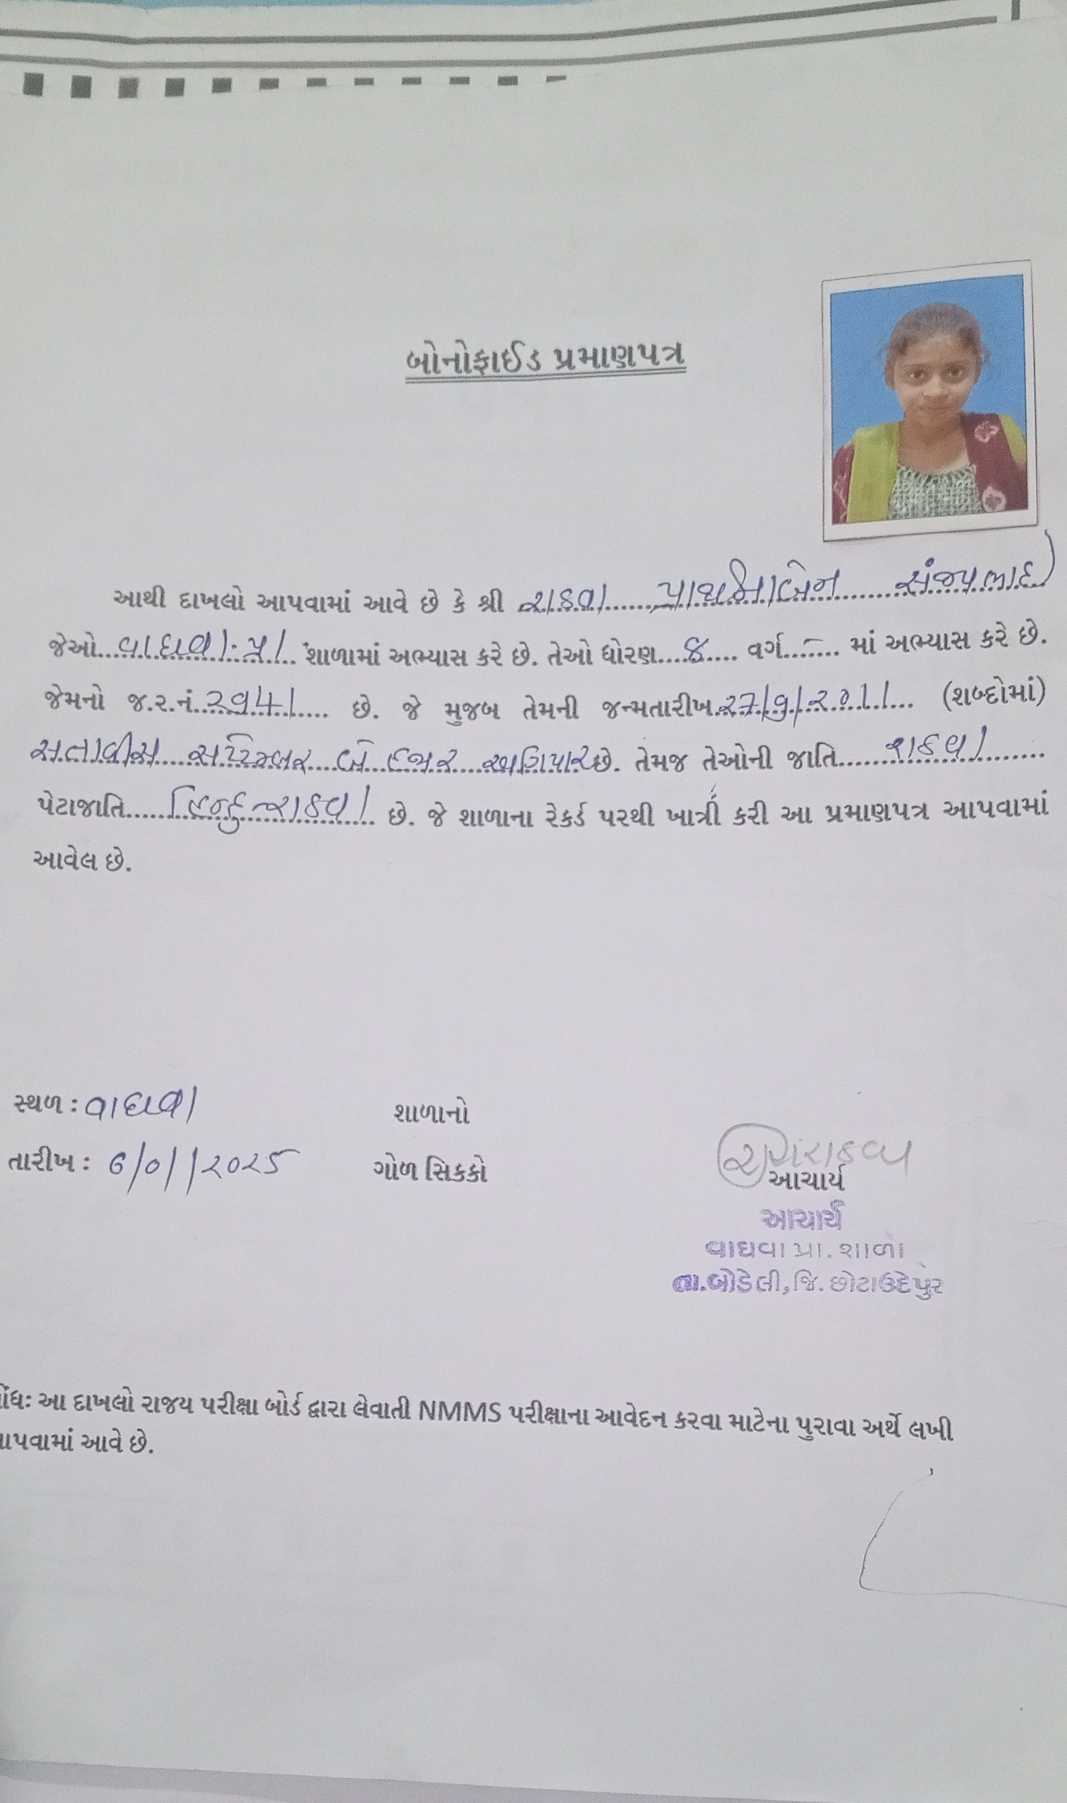 બોનોફાઈડ પ્રમાણપત્ર
આથી દાખલો આપવામાં આવે છે કે શ્રી રાઠવા સંજયભાઈ
જેઓ..વાઘવા પ્રા શાળામાં અભ્યાસ કરે છે. તેઓ ધોરણ....8.... વર્ગ...–... માં અભ્યાસ કરે છે.
જેમનો જ.ર.નં. છે. જે મુજબ તેમની જન્મતારીખ.27/9/2011... (શબ્દોમાં)
સતાવીસ....સપ્ટેમ્બર...બે હજાર...અગિયાર છે. તેમજ તેઓની જાતિ....રાઠવા....
પેટાજાતિ....હિન્દુ રાઠવા. છે. જે શાળાના રેકર્ડ પરથી ખાત્રી કરી આ પ્રમાણપત્ર આપવામાં
આવેલ છે.
સ્થળ : વાઘવા
શાળાનો
તારીખ : 6/01/2025
ગોળ સિકકો
આચાર્ય
આચાર્ય
વાઘવા પ્રા. શાળા
તા.બોડેલી, જિ. છોટાઉદેપુર
નોંધ: આ દાખલો રાજય પરીક્ષા બોર્ડ દ્વારા લેવાતી NMMS પરીક્ષાના આવેદન કરવા માટેના પુરાવા અર્થે લખી
આપવામાં આવે છે.